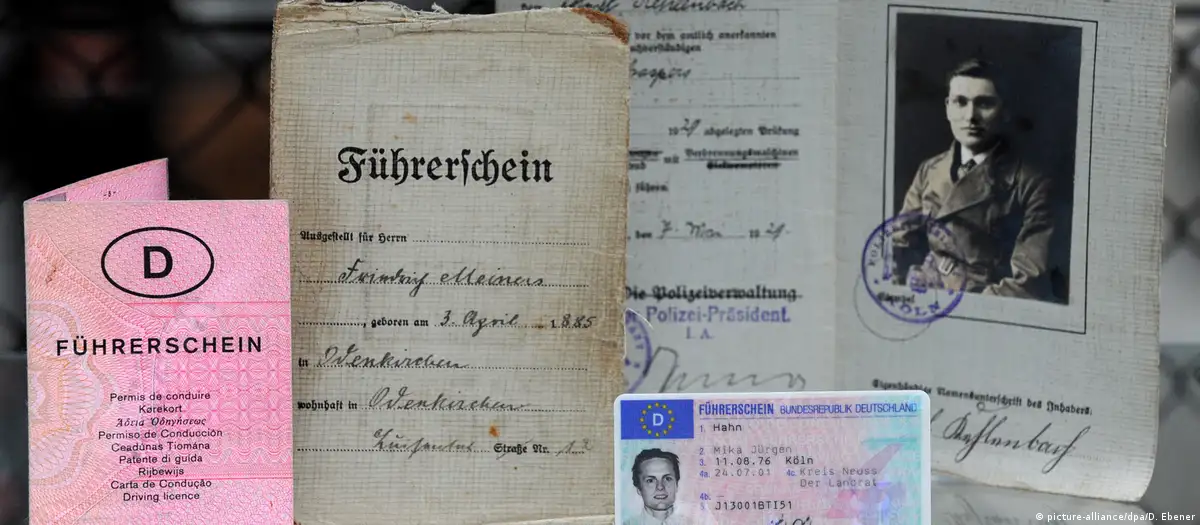 -8-
D
FÜHRERSCHEIN
Permis de conduire
Kørekort
Άδεια Οδηγήσεως
Permiso de Conducción
Ceadúnas Tiomána
Patente di guida
Rijbewijs
Carta de Condução
Driving licence
Führerschein
Ausgestellt für Herrn
Friedrich Meiners
, geboren am 3. April 1885
in Odenkirchen
wohnhaft in Odenkirchen
Straße Nr. 13
vor dem amtlich anerkannten
1929 abgelegten Prüfung
mit Verbrennungsmaschinen
führen.
, den 7. Mai 1929.
Die Polizeiverwaltung
Polizei-Präsident.
I. A.
KÖLN
Eigenhändige Namensunterschrift des Inhabers.
Kehlenbach
D
FÜHRERSCHEIN BUNDESREPUBLIK DEUTSCHLAND
1. Hahn
2. Mika Jürgen
3. 11.08.76 Köln
4a. 24.07.01 4c. Kreis Neuss
Der Landrat
4b. -
5. J13001BTI51
© picture-alliance/dpa/D. Ebener